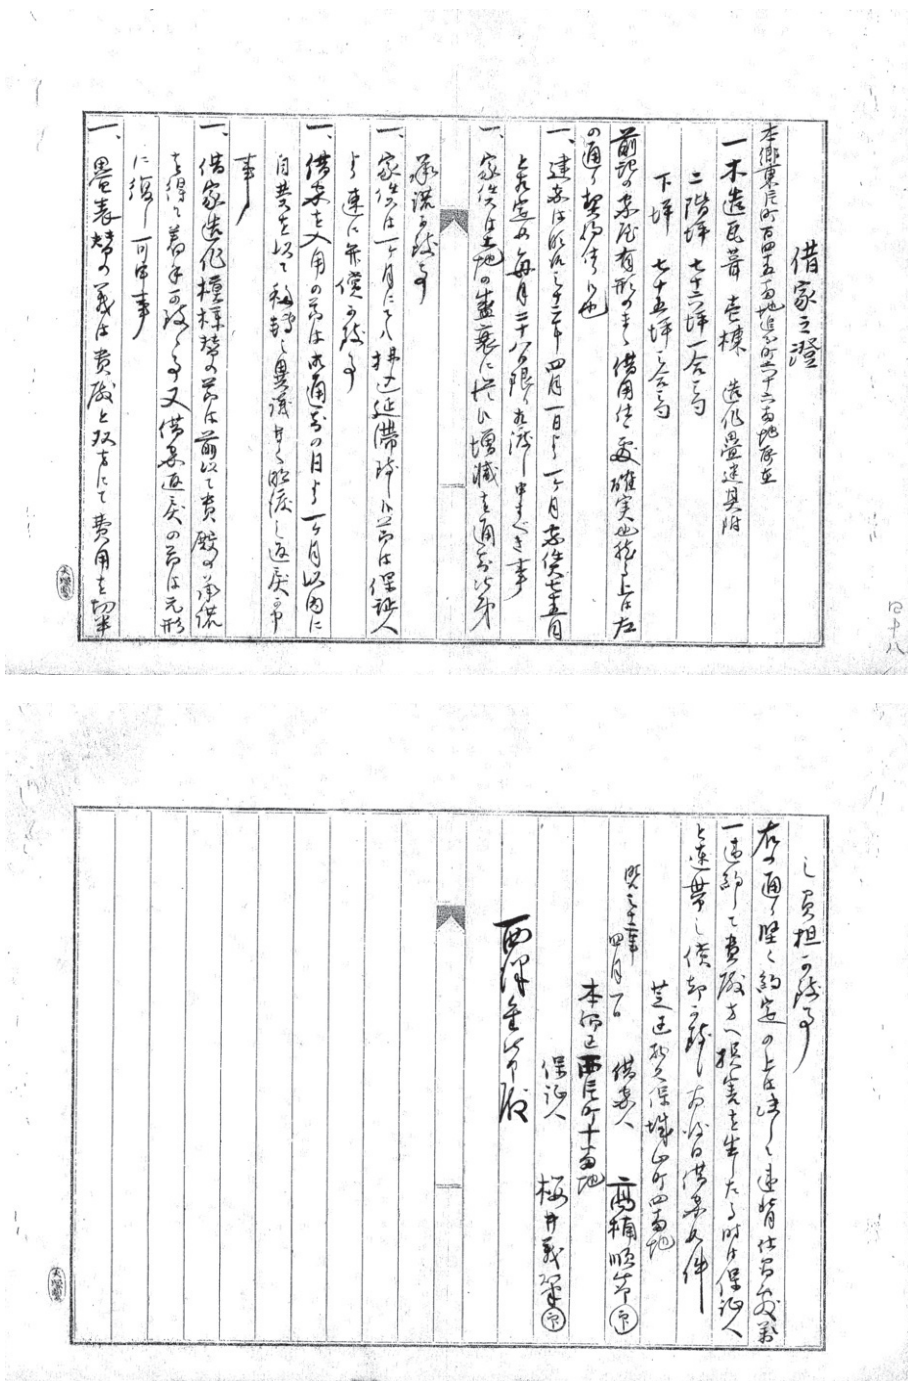 借家之證
本郷東片町百四十五番地追分町六十六番地所在
一木造瓦葺 壱棟 造作畳建具附
二階坪 七十六坪一合三勺
下坪 七十五坪 合 勺
前記の家屋有形のまゝ借用仕 處確実 上は左
の通り契約仕 也
一、建家は明治三十二年四月一日より一ヶ月家賃七十五円
と相定め毎月二十八日限り相渡し申すべき事
一、家賃は土地の盛衰に從ひ増減を通知 第
承諾可致事
一、家賃は一ヶ月にても拂込延滞致 節は保証人
より速に弁償可致事
一、借家を入用の節は御通知の日より一ヶ月以内に
自費を以て移轉し異議なく明渡し返戻可申
事
一、借家造作模様替の節は前以て貴殿の承諾
を得て着手可致事又借家返戻の節は元形
に復し可申事
一、畳表替の義は貴殿と双方にて費用を切半
四十八
し負担可致事
右の通り堅く約定の上は决して違背仕間敷万
一違約して貴殿方へ損害を生じたる時は保証人
と連帯し償却可致 為後日借家如件
芝区 久保城山町四番地
明治三十二年四月一日 借家人 高楠順次郎 印
本郷区西片町十番地
保証人 桜井義肇 印
西澤 殿